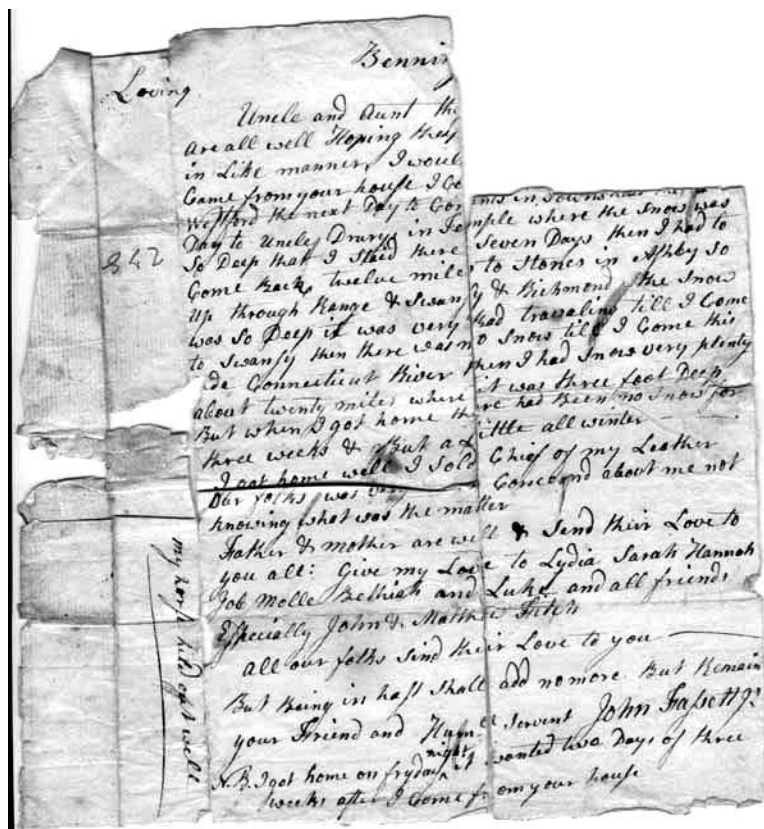 Benning
Loving
Uncle and Aunt the
are all well Hoping these
in Like manner, I would
Came from your house I Go
ents in Townsend
Westford the next Day to Gor
Day to Uncle Drurys in Temple where the Snow was
So Deep that I Staid there Seven Days then I had to
Come Back twelve miles to Stones in Ashby so
up through Range & Swanzy & Richmond the Snow
was So Deep it was very Bad travaling till I Come
to Swanzy then there was no Snow till I Come this
ide Connecticut River then I had Snow very plenty
about twenty miles where it was three foot Deep
But when I got home there had Been no Snow for
three weeks & But a Little all winter
I got home well I Sold Chief of my Leather
Our folks was very Concernd about me not
knowing what was the matter
Father & mother are well & Send their Love to
you all: Give my Love to Lydia Sarah Hannah
Job Molle Bethiah and Luke and all friends
Especially John & Matthew Fitch
all our folks Send their Love to you
But Being in hast Shall add no more But Remain
your Friend and Humbe Servent John Fassett Jr
N.B. I got home on fryday night it wanted two Days of three
weeks after I Come from your house
842
my horse held out well